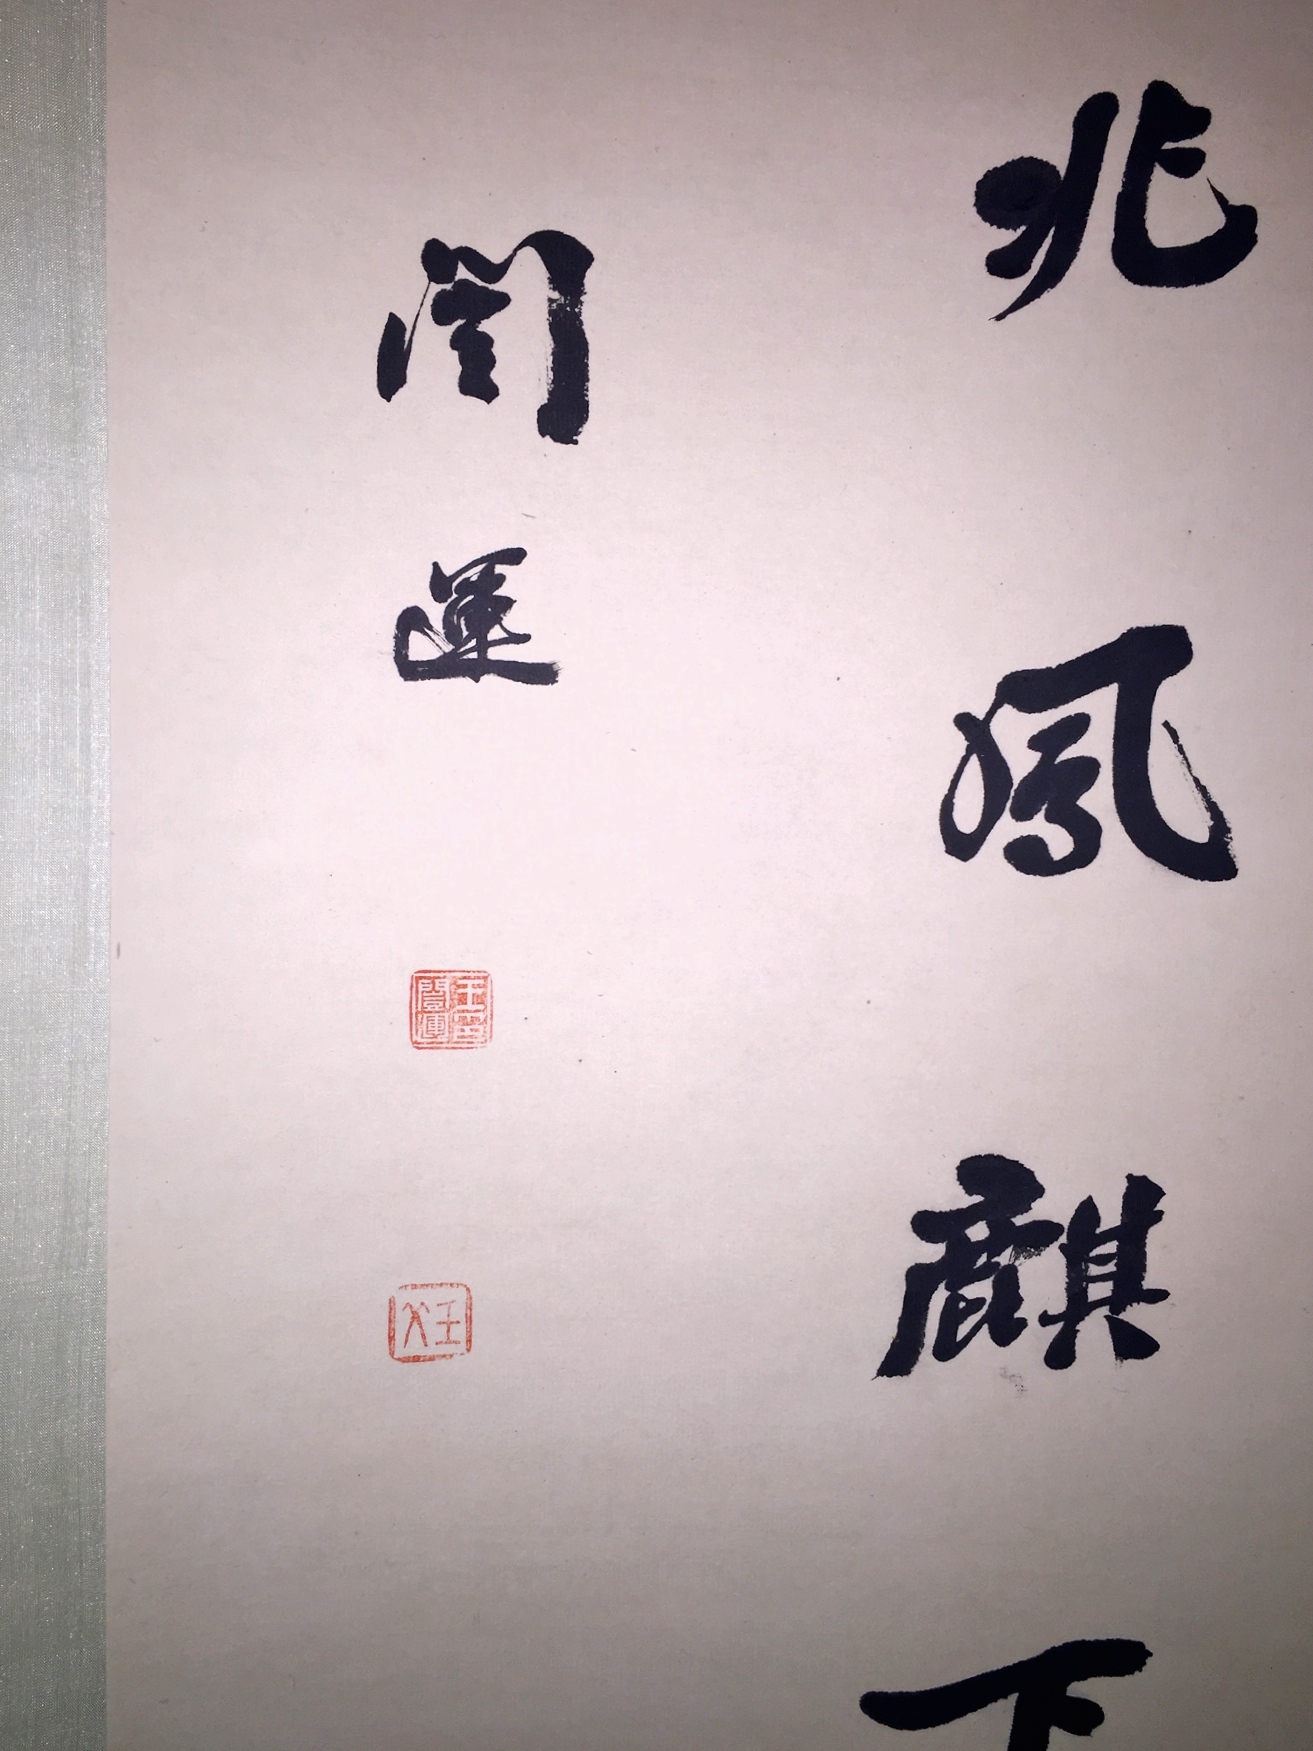 兆鳳麒下
闓運
王闓運印
王父